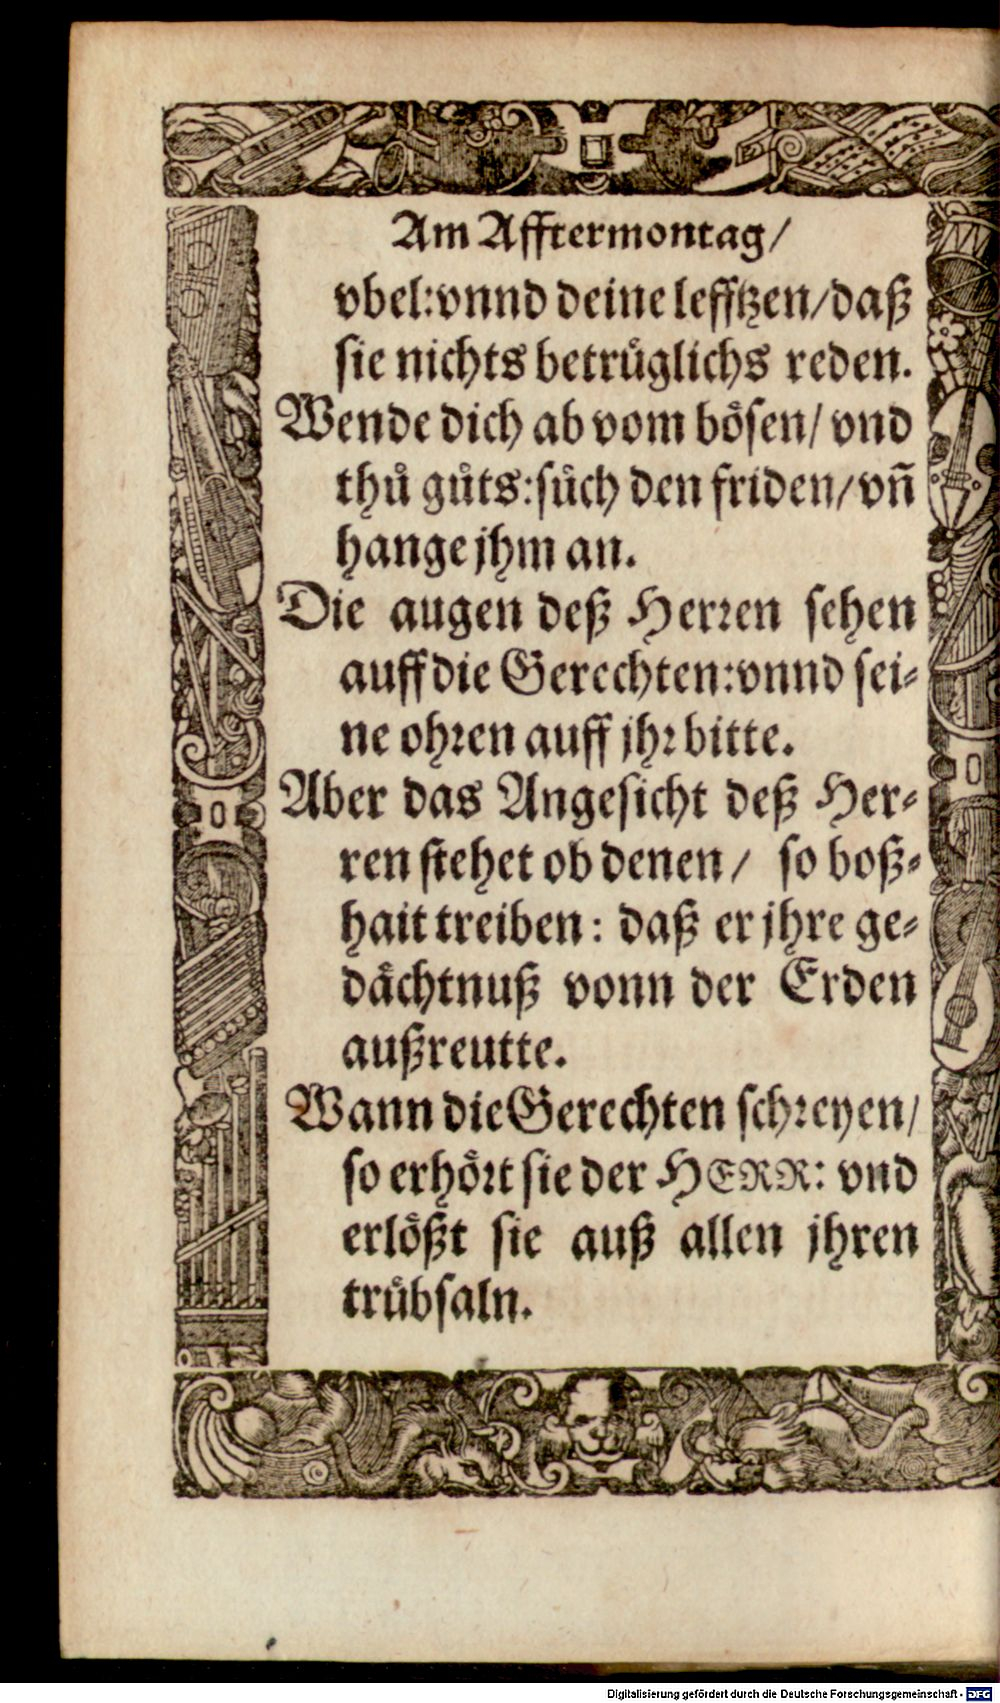 Am Afftermontag/
vbel: vnnd deine lefftzen/ daß
sie nichts betruͤglichs reden.
Wende dich ab vom boͤsen/ vnd
thuͦ guͦts: suͦch den friden/ vñ
hange jhm an.
Die augen deß Herren sehen
auff die Gerechten: vnnd sei⸗
ne ohren auff jhr bitte.
Aber das Angesicht deß Her⸗
ren stehet ob denen/ so boß⸗
hait treiben: daß er jhre ge⸗
daͤchtnuß vonn der Erden
außreutte.
Wann die Gerechten schreyen/
so erhoͤrt sie der HERR: vnd
erloͤßt sie auß allen jhren
truͤbsaln.
Digitalisierung gefördert durch die Deutsche Forschungsgemeinschaft - DFG